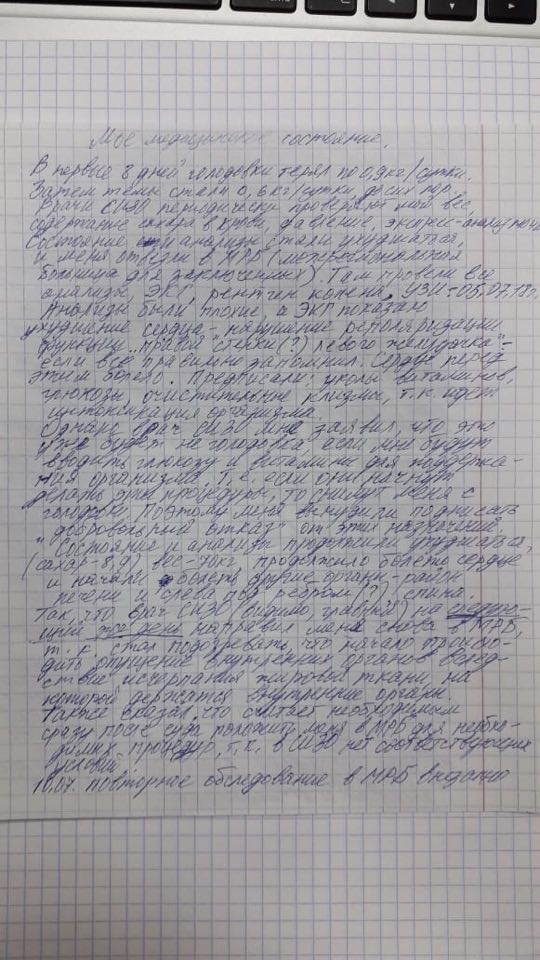 Мое медицинское состояние.
В первые 8 дней голодовки терял по 0,9кг/сутки.
Затем темп стал 0,6кг/сутки, до сих пор.
Врачи СИЗО периодически проверяют мой вес,
содержание сахара в крови, давление, экспресс-анализ мочи
Состояние и анализы стали ухудшаться,
и меня отвезли в МРБ (межрегиональная
больница для заключенных). Там провели все
анализы, ЭКГ, рентген колена, УЗИ - 05.07.18г.
Анализы были плохие, а ЭКГ показало
ухудшение сердца - нарушение реполяризации
функции "правой стенки(?) левого желудочка" -
если всё правильно запомнил. Сердце перед
этим болело. Предписали: уколы витаминов,
глюкозы, очистительные клизмы, т.к. идет
интоксикация организма.
Однако врач СИЗО мне заявил, что это
уже будет не голодовка, если мне будут
вводить глюкозу и витамины для поддержа-
ния организма, т.к. если они начнут
делать эти процедуры, то снимут меня с
голодовки. Поэтому меня вынудили подписать
"добровольный отказ" от этих назначений.
Состояние и анализы продолжили ухудшаться,
(сахар - 8,9) вес - 70кг, продолжило болеть сердце
и начали болеть другие органы - район
печени и слева под ребром(?), спина.
Так, что врач СИЗО (видимо главный) на следую-
щий же день направил меня снова в МРБ,
т.к. стал подозревать, что начало происхо-
дить опущение внутренних органов вслед-
ствие исчерпания жировой ткани, на
которой держатся внутренние органы.
Также сказал, что считает необходимым
сразу после суда положить меня в МРБ для необхо-
димых процедур, т.к. в СИЗО нет соответствующих
условий.
10.07. повторное обследование в МРБ